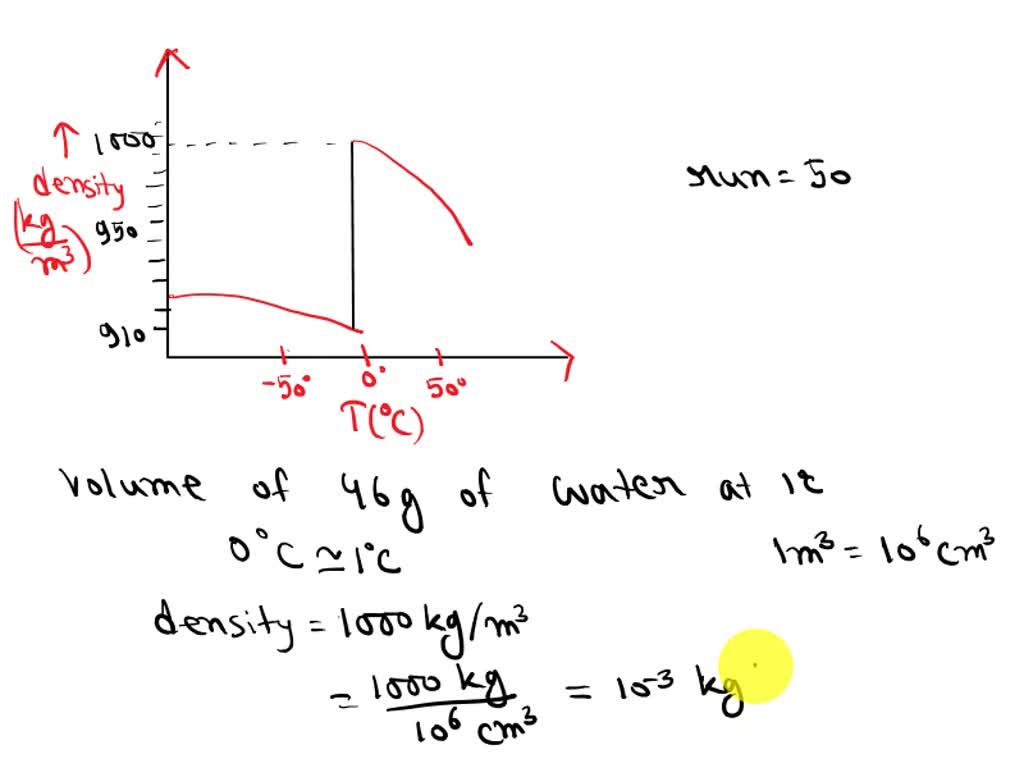 1000
density
(kg/m³)
950
910
-50°
0°
50°
T(°C)
run = 50
Volume of 46g of water at 1°c
0°C ≃ 1°C
1m³ = 10⁶ cm³
density = 1000 kg/m³
= 1000 kg / 10⁶ cm³ = 10⁻³ kg